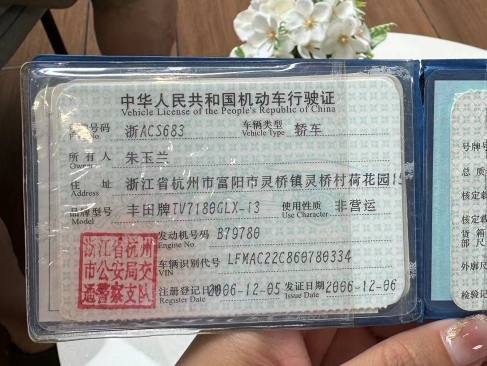 中华人民共和国机动车行驶证
Vehicle License of the People's Republic of China
号牌号码 浙ACS683 车辆类型 轿车
No. Vehicle Type
所有人 朱玉兰
Owner
住址 浙江省杭州市富阳市灵桥镇灵桥村荷花园15
Address
品牌型号 丰田牌TV7180GLX-i3 使用性质 非营运
Model Use Character
发动机号码 B79780
Engine No.
车辆识别代号 LFMAC22C860780334
VIN
注册登记日期 2006-12-05 发证日期 2006-12-06
Register Date Issue Date
浙江省杭州
市公安局交
通警察支队
号牌号
总质
核定载
核定载
货箱
部尺
外廓尺
检验记